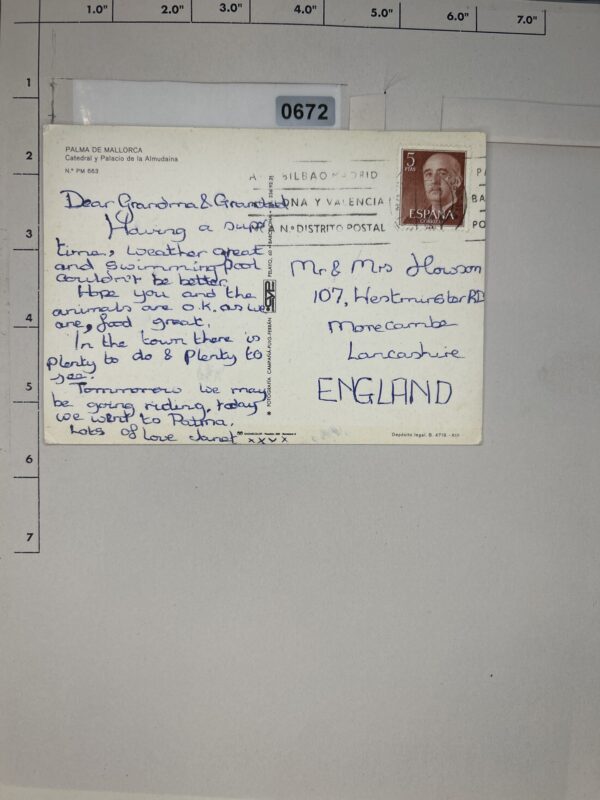 1.0" 2.0" 3.0" 4.0" 5.0" 6.0" 7.0"
1
2
3
4
5
6
7
0672
PALMA DE MALLORCA
Catedral y Palacio de la Almudaina
N.º PM 663
Dear Grandma & Grandad
Having a super
time, weather great
and swimming pool
couldn't be better.
Hope you and the
animals are O.K. as we
are, food great.
In the town there is
plenty to do & plenty to
see.
Tommorrow we may
be going riding, today
we went to Palma.
Lots of love Janet
xxvx
FOTOGRAFIA CAMPAÑÁ-PUIG-FERRÁN
PELAYO, 60 • BARCELONA
BILBAO MADRID
ONA Y VALENCIA
N.º DISTRITO POSTAL
5
PTAS
ESPAÑA
CORREOS
Mr & Mrs Howson
107, Westminster RD
Morecambe
Lancashire
ENGLAND
Depósito legal. B. 4719 - XIII